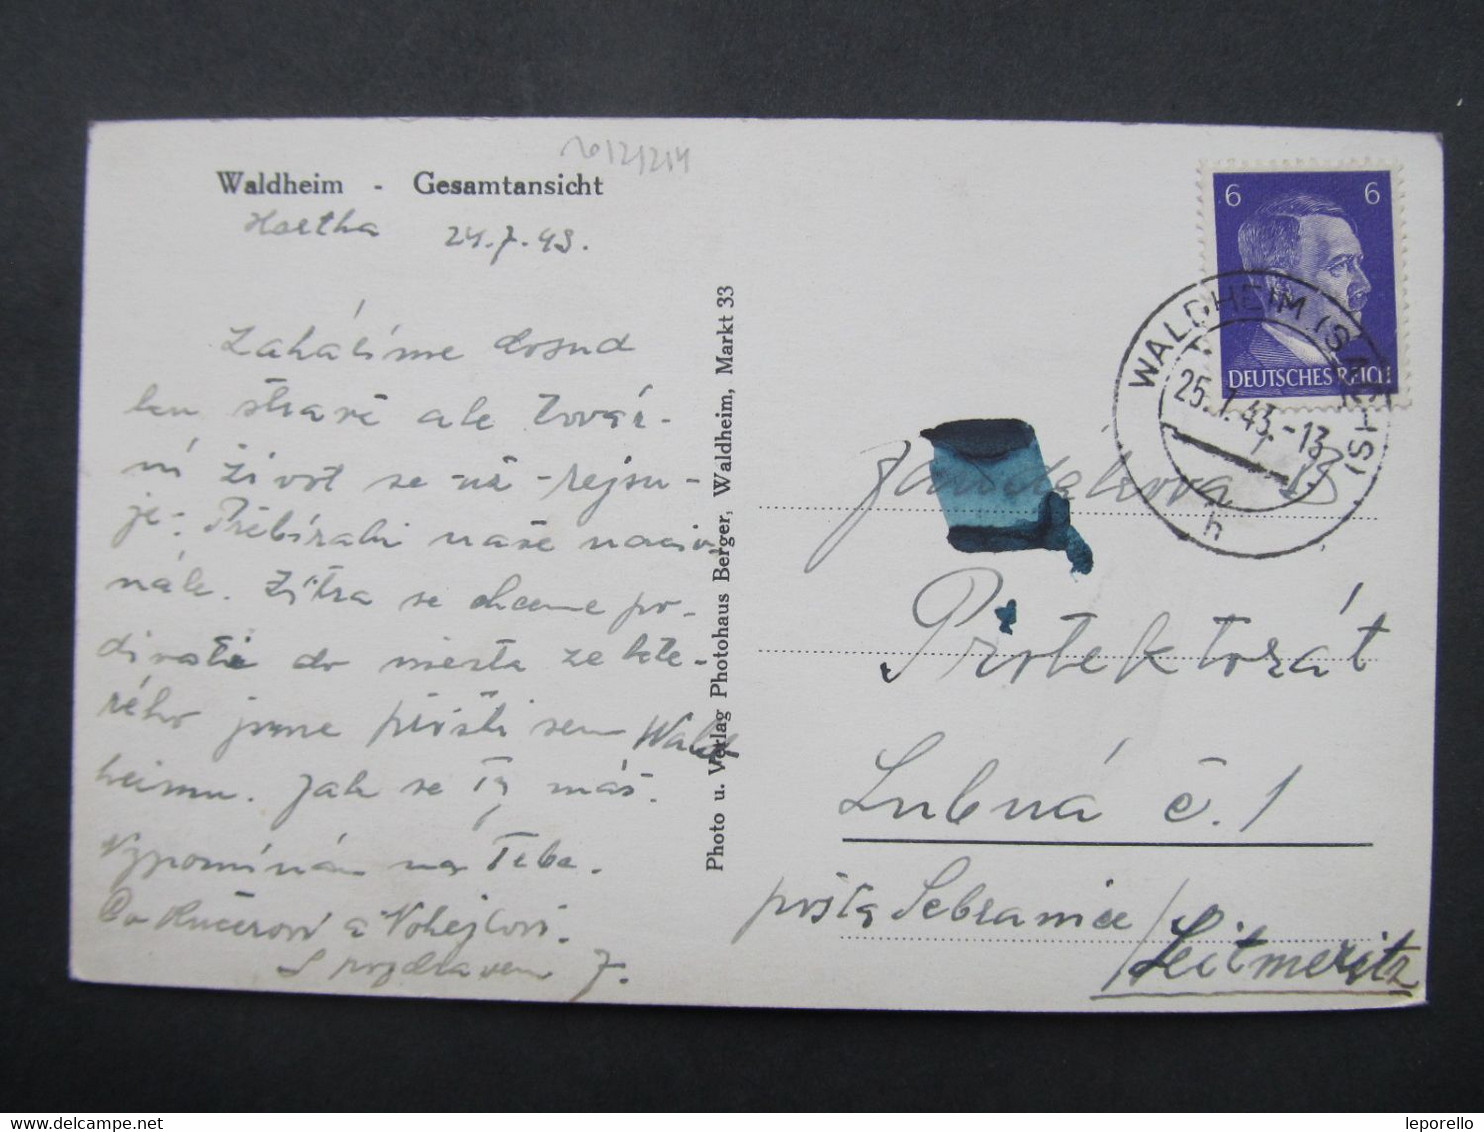 20121214
Waldheim - Gesamtansicht
Hartha 24.7.43.
Zahálíme dosud
len stravě ale továr-
ní život se ná-rejsu-
je. Přebírali naše
nále. Zítra se chceme po-
dívati do města ze kte-
rého jsme přišli sem Wald
heimu. Jak se Ty máš.
Vzpomínám na Tebe.
Kučerovi a Nohejlovi.
S pozdravem J.
Photo u. Verlag Photohaus Berger, Waldheim, Markt 33
6 6
DEUTSCHES REICH
WALDHEIM (SACHS)
25.7.43.-13
h
Protektorát
Lubná č. 1
pošta Sebranice /
Leitmeritz
leporello
delcampe.net